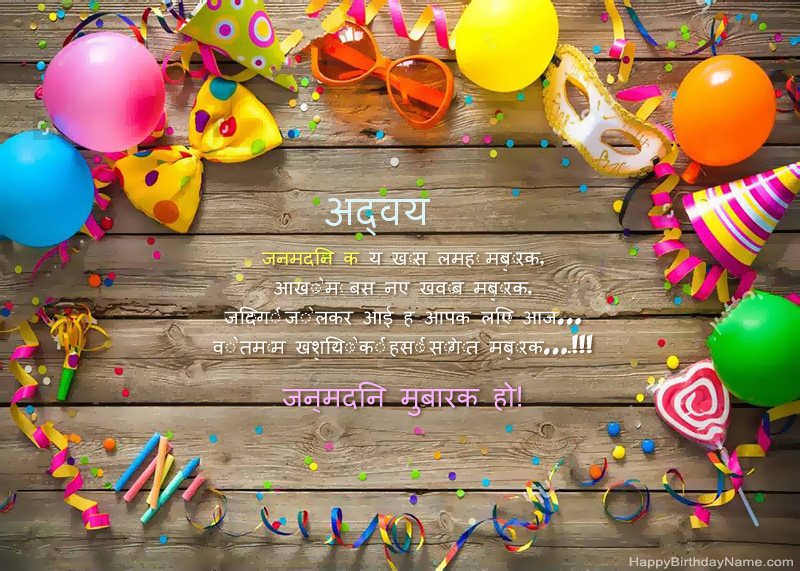 अद्वय
जनमदनि क य ख़ास लमहा मब़ारक,
आखोम बस नए खवाब मब़ारक,
जदिंगी जो लेकर आई ह आपक लएि आज...
वो तमाम खुशयिो की हसी सौगात मब़ारक...!!!
जन्मदनि मुबारक हो!
HappyBirthdayName.com